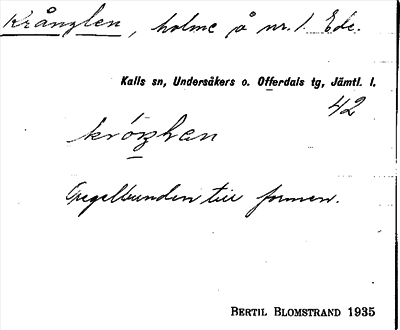 Krånglen, holme å nr. 1 Ede.
Kalls sn, Undersåkers o. Offerdals tg, Jämtl. l.
42
Oregelbunden till formen.
BERTIL BLOMSTRAND 1935